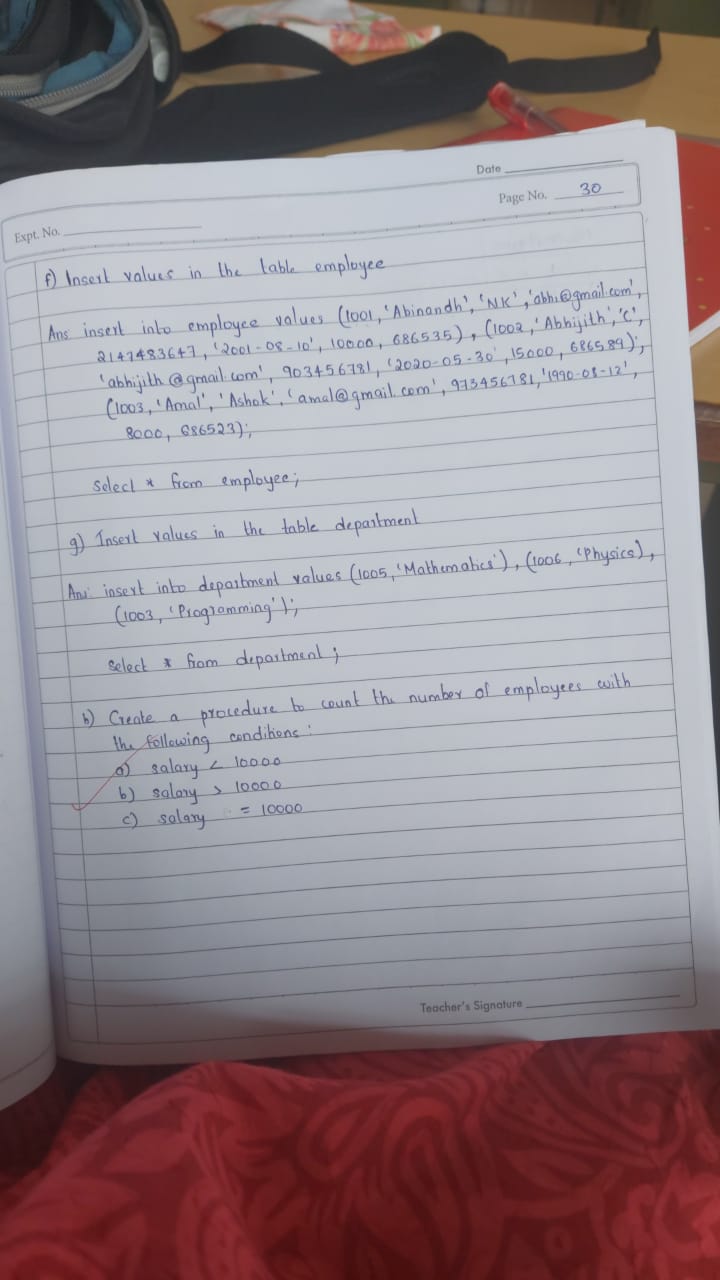 Date
Page No. 30
Expt. No.
f) Insert values in the table employee
Ans. insert into employee values (1001, 'Abinandh', 'NK', 'abhi@gmail.com',
2147483647, '2001-08-10', 10000, 686535), (1002, 'Abhijith', 'C',
'abhijith@gmail.com', 903456781, '2020-05-30', 15000, 686589);,
(1003, 'Amal', 'Ashok', 'amal@gmail.com', 973456781, '1990-08-12',
8000, 686523);
select * from employee;
g) Insert values in the table department
Ans: insert into department values (1005, 'Mathematics'), (1006, 'Physics),
(1003, 'Programming');
select * from department;
h) Create a procedure to count the number of employees with
the following conditions:
a) salary < 10000
b) salary > 10000
c) salary = 10000
Teacher's Signature